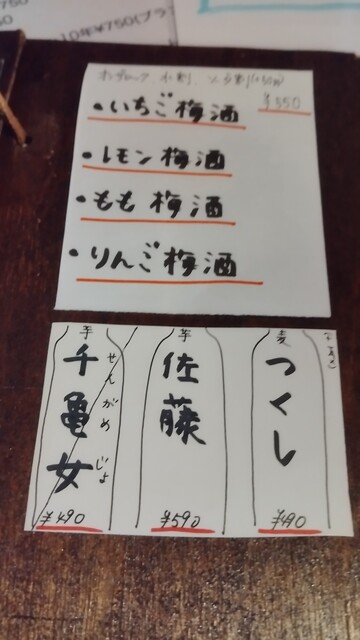 10年¥750(プラ
オンザロック 水割、ソーダ割(+50円)
¥550
・いちご梅酒
・レモン梅酒
・もも梅酒
・りんご梅酒
麦
つくし
¥490
芋
佐藤
¥590
芋
千亀女
せんがめじょ
¥490